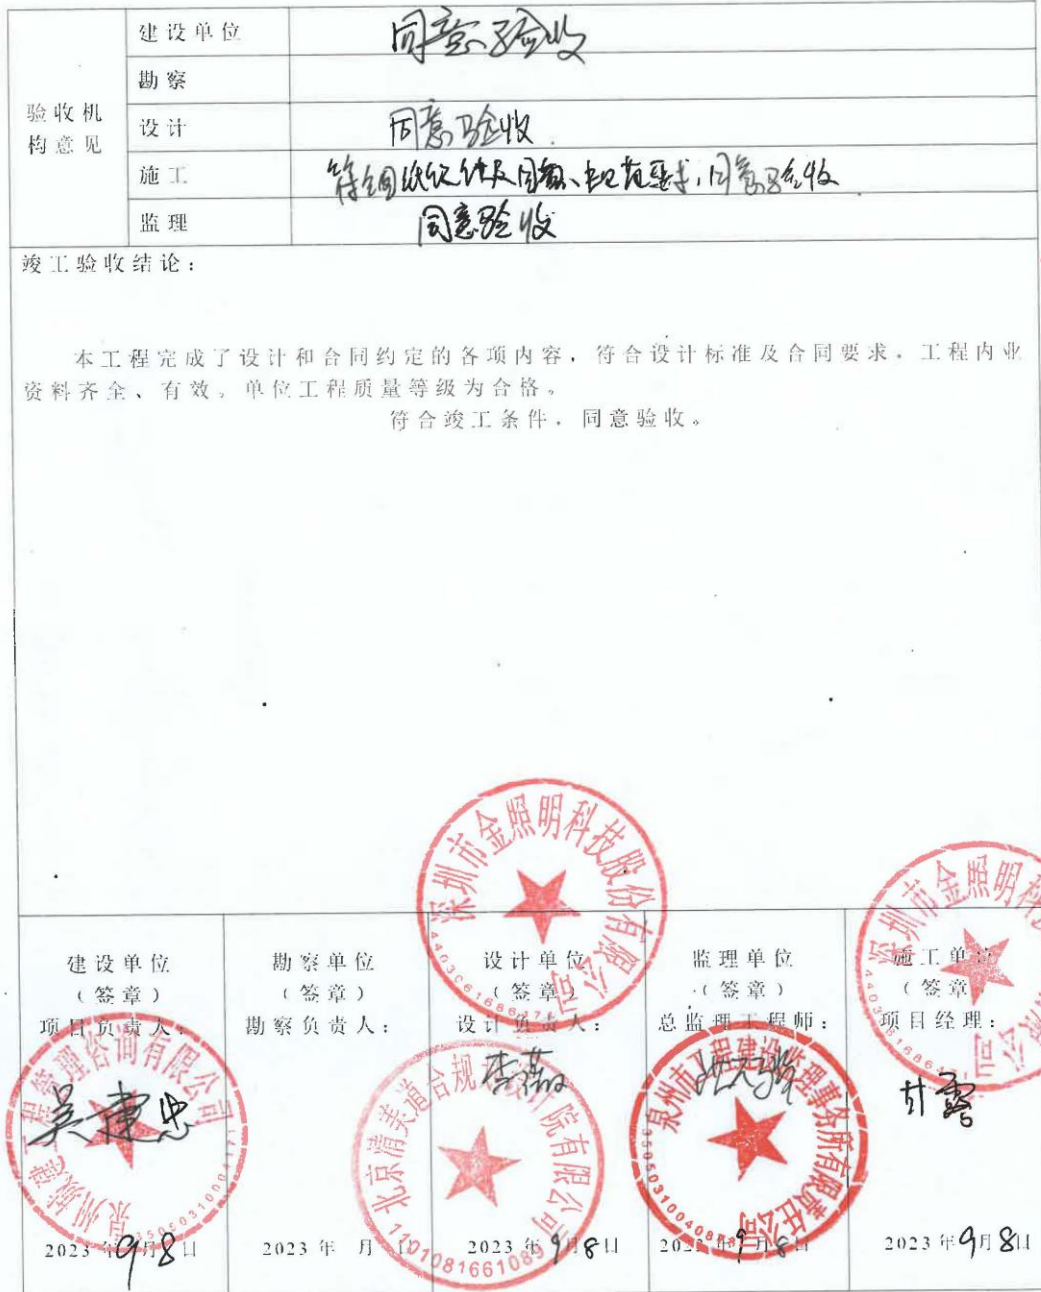 验收机构意见
建设单位 同意验收
勘察
设计 同意验收.
施工 规范要求,同意验收.
监理 同意验收
竣工验收结论:
本工程完成了设计和合同约定的各项内容,符合设计标准及合同要求,工程内业
资料齐全、有效。单位工程质量等级为合格。
符合竣工条件,同意验收。
建设单位
(签章)
项目负责人:
吴建忠
2023年9月8日
勘察单位
(签章)
勘察负责人:
2023年 月 日
设计单位
(签章)
设计负责人:
2023年9月8日
监理单位
(签章)
总监理工程师:
2023年9月8日
施工单位
(签章)
项目经理:
甘露
2023年9月8日
深圳市金照明科技股份有限公司
深圳市金照明科
公司
泉州城建工程管理咨询有限公司
北京清美道合规划设计院有限公司
1101081661089
泉州市工程建设监理事务所有限责任公司